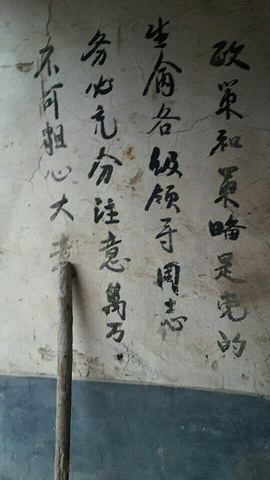 政策和策略是党的
生俞各级领导同志
务必充分注意萬万
不可粗心大意